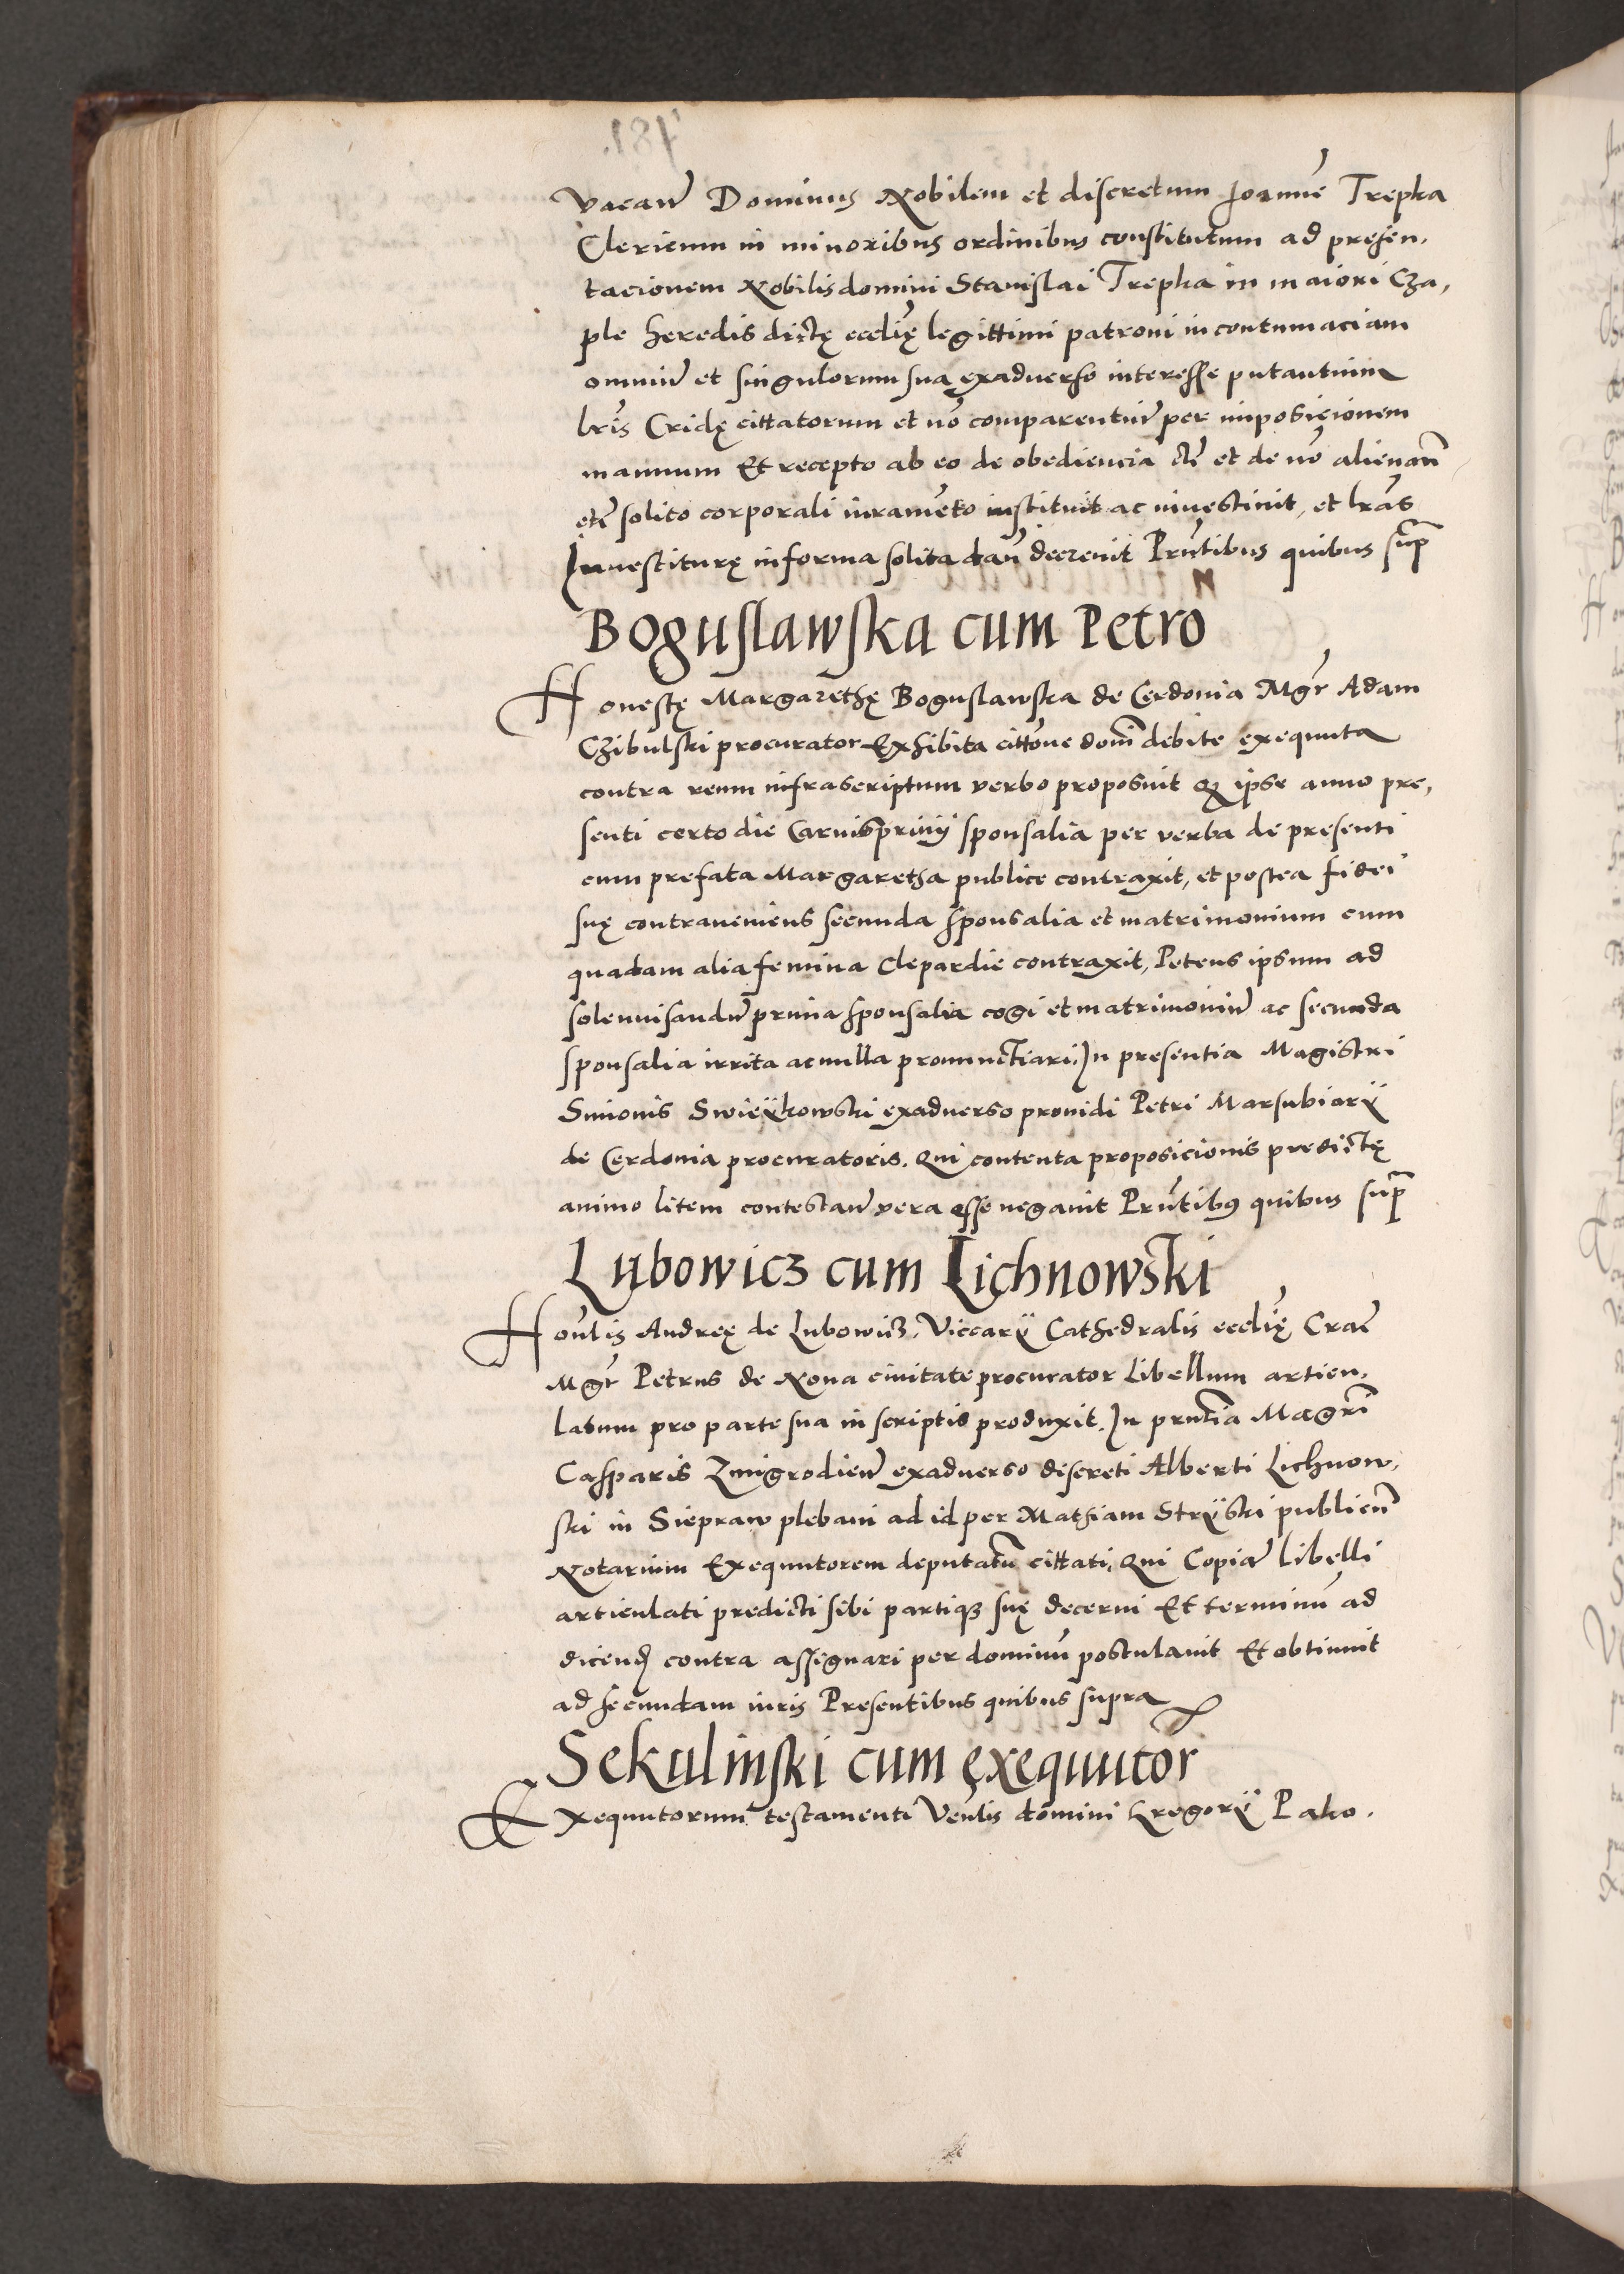 vacan̄ Dominus Nobilem et discretum Joannē Trepka
Clericum in minoribus ordinibus constitutum ad presen,
tacionem Nobilis domini Stanislai Trepka in maiori Cza,
ple heredis dictę ecclię legittimi patroni in contumaciam
omniū et singulorum sua exaduerso interesse putantium
lrīs Cridę cittatorum et nō comparentiū per imposicionem
manuum Et recepto ab eo de obediencia etc̄ et de nō alienan̄
etc̄ solito corporali iuramēto instituit ac inuestiuit, et lrās
Inuestiturę in forma solita dan̄ decreuit Prn̄tibus quibus sup̄
Boguslawska cum Petro
Honestę Margarethę Boguslawska de Cerdonia Mgr̄ Adam
Czibulski procurator Exhibita cittōne dom̄ debite exequuta
contra reum infrascriptum verbo proposuit qz ipse anno pre,
senti certo die Carnispriuij sponsalia per verba de presenti
cum prefata Margaretha publice contraxit, et postea fidei
suę contraueniens secunda sponsalia et matrimonium cum
quadam alia femina Clepardie contraxit, Petens ipsum ad
solennisandū prima sponsalia cogi et matrimoniū ac secunda
sponsalia irrita ac nulla pronunctiari, In presentia Magistri
Simonis Swieÿkowski exaduerso prouidi Petri Marsubiarÿ
de Cerdonia procuratoris. Qui contenta proposicionis predictę
animo litem contestan̄ vera esse negauit Prn̄tibus quibus sup̄
Lubowicz cum Lichnowski
Hon̄lis Andreę de Lubowicz, Viccarÿ Cathedralis ecclię Crac̄
Mgr̄ Petrus de Noua ciuitate procurator Libellum articu,
latum pro parte sua in scriptis produxit. In prn̄tia Magr̄i
Casparis Zmigrodien̄ exaduerso discreti Alberti Lichnow,
ski in Siepraw plebani ad id per Mathiam Strÿski publicū
Notarium Exequutorem deputatū cittati, Qui Copiā libelli
articulati predicti sibi partiqz suę decerni Et terminū ad
dicend̄ contra assignari per dominū postulauit Et obtinuit
ad secundam iuris Presentibus quibus supra
Sekulinski cum exequutor̄
Exequutorum testamenti Ven̄lis domini Gregorÿ Pako.